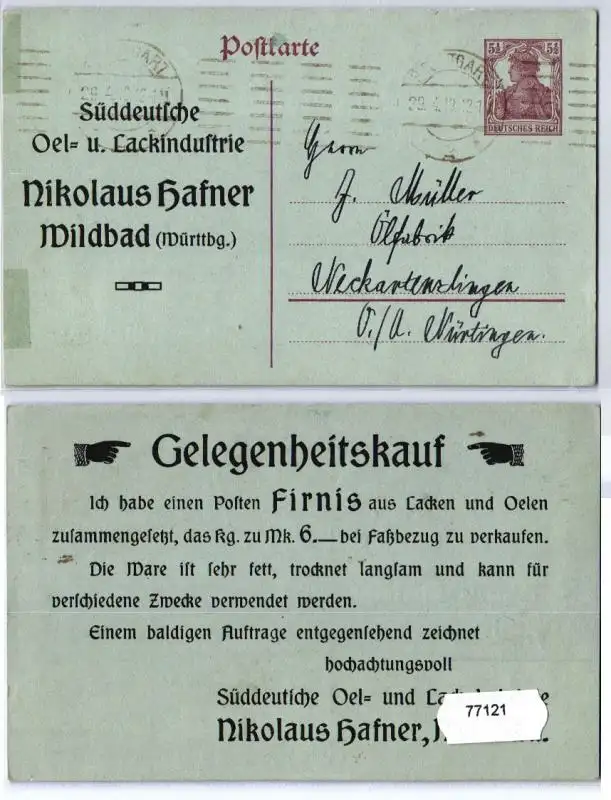 Postkarte
5½ 5½
DEUTSCHES REICH
Süddeutsche
Oel= u. Lackindustrie
Nikolaus Hafner
Wildbad (Württbg.)
Herrn
J. Müller
Ölfabrik
Neckartenzlingen
O./A. Nürtingen.
Gelegenheitskauf
Ich habe einen Posten Firnis aus Lacken und Oelen
zusammengesetzt, das Kg. zu Mk. 6.— bei Faßbezug zu verkaufen.
Die Ware ist sehr fett, trocknet langsam und kann für
verschiedene Zwecke verwendet werden.
Einem baldigen Auftrage entgegensehend zeichnet
hochachtungsvoll
Süddeutsche Oel= und
Nikolaus Hafner,
77121